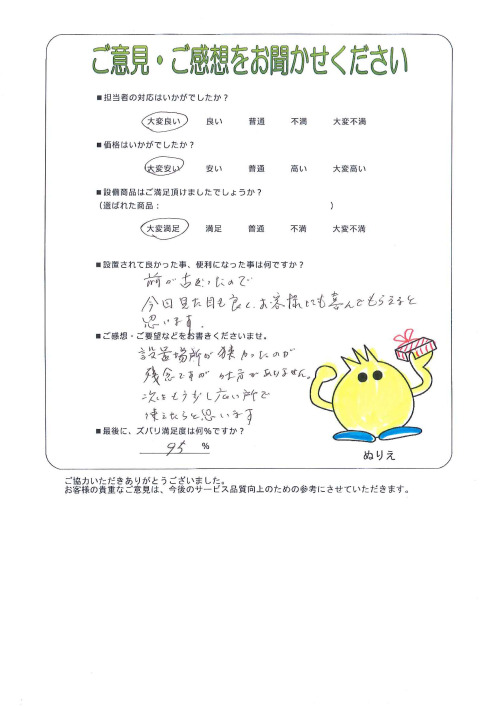 ご意見・ご感想をお聞かせください
■担当者の対応はいかがでしたか？
大変良い 良い 普通 不満 大変不満
■価格はいかがでしたか？
大変安い 安い 普通 高い 大変高い
■設備商品はご満足頂けましたでしょうか？
（選ばれた商品： ）
大変満足 満足 普通 不満 大変不満
■設置されて良かった事、便利になった事は何ですか？
前が古かったので
今回見た目も良く、お客様にも喜んでもらえると
思います。
■ご感想・ご要望などをお書きくださいませ。
設置場所が狭かったのが
残念ですが仕方がありません。
次はもう少し広い所で
使えたらと思います
■最後に、ズバリ満足度は何％ですか？
95 ％
ぬりえ
ご協力いただきありがとうございました。
お客様の貴重なご意見は、今後のサービス品質向上のための参考にさせていただきます。